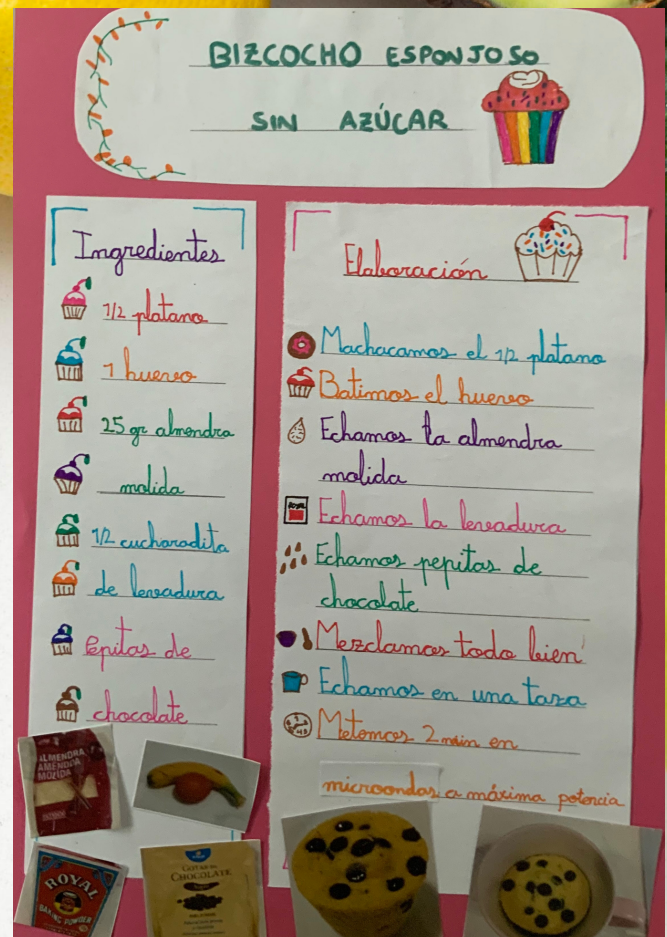 BIZCOCHO ESPONJOSO
SIN AZÚCAR
Ingredientes
1/2 platano
1 huevo
25 gr almendra
molida
1/2 cucharadita
de levadura
Pepitas de
chocolate
Elaboración
Machacamos el 1/2 platano
Batimos el huevo
Echamos la almendra
molida
Echamos la levadura
Echamos pepitas de
chocolate
Mezclamos todo bien
Echamos en una taza
Metemos 2 min en
microondas a máxima potencia
ALMENDRA
AMÊNDOA
MOLIDA
ROYAL
BAKING POWDER
GOTAS DE
CHOCOLATE